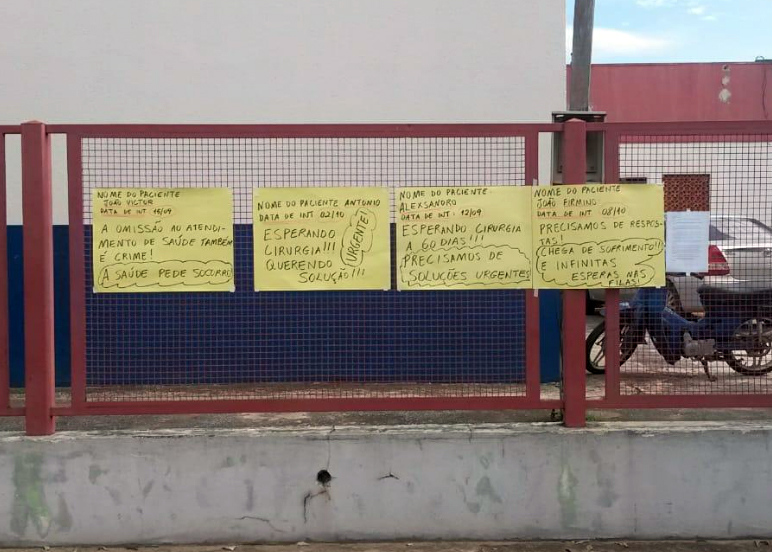 NOME DO PACIENTE
JOÃO VICTOR
DATA DE INT 15/09
A OMISSÃO AO ATENDI-
MENTO DE SAÚDE TAMBÉM
É CRIME!
A SAÚDE PEDE SOCORRO
NOME DO PACIENTE ANTONIO
DATA DE INT 02/10
ESPERANDO
CIRURGIA!!!
QUERENDO
SOLUÇÃO!!!
URGENTE!
NOME DO PACIENTE
ALEXSANDRO
DATA DE INT: 12/09
ESPERANDO CIRURGIA
A 60 DIAS!!!
PRECISAMOS DE
SOLUÇÕES URGENTES
NOME DO PACIENTE
JOÃO FIRMINO
DATA DE INT 08/10
PRECISAMOS DE RESPOS-
TAS!
CHEGA DE SOFRIMENTO!!
E INFINITAS
ESPERAS NAS
FILAS!